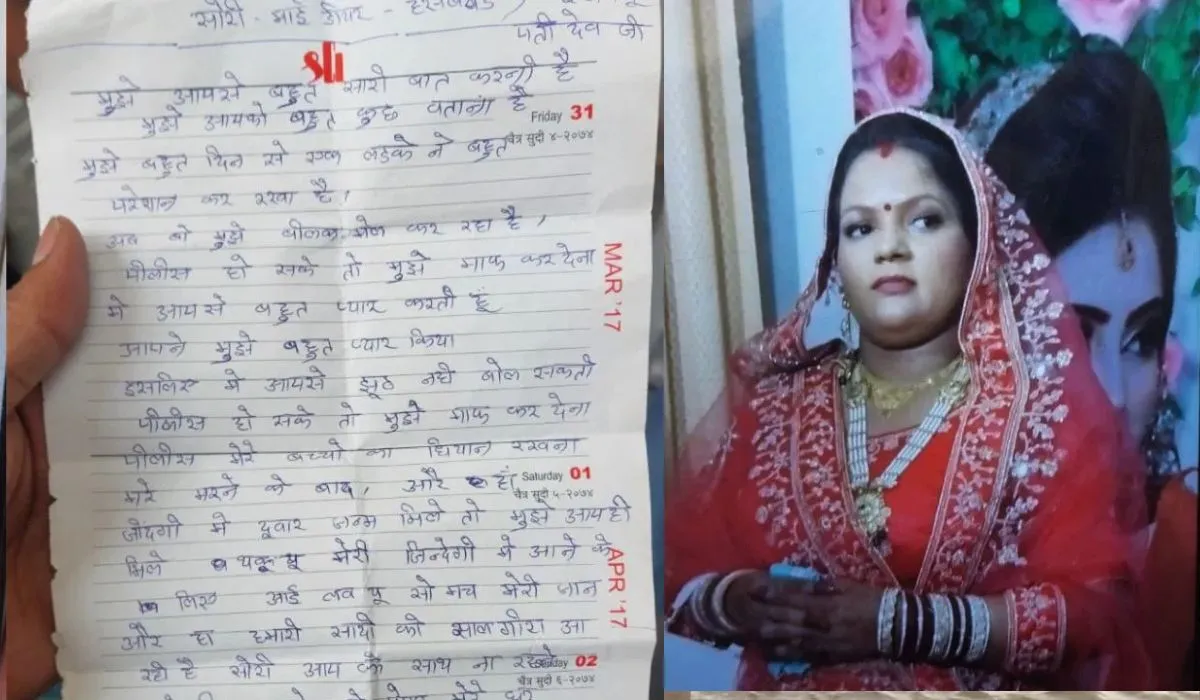 सोरी - माई डीयर - हसबेंड
पती देव जी
sti
मुझे आपसे बहुत सारी बात करनी है
मुझे आपको बहुत कुछ बताना है
Friday 31
चैत्र सुदी ४-२०७४
मुझे बहुत दिन से एक लडके ने बहुत
परेशान कर रखा है,
अब वो मुझे बीलेक मेल कर रहा है,
पीलीस हो सके तो मुझे माफ कर देना
MAR '17
मे आपसे बहुत प्यार करती हूं
आपने मुझे बहुत प्यार किया
इसलिए मे आपसे झूठ नही बोल सकती
पीलीस हो सके तो मुझे माफ कर देना
पीलीस मेरे बच्चो का धियान रखना
मारे मरने के बाद, और हां
Saturday 01
चैत्र सुदी ५-२०७४
जीदगी मे दूवार जन्म मिले तो मुझे आप ही
मिले थकयू मेरी जिन्देगी मे आने के
APR '17
लिए आई लव यू सो मच मेरी जान
और हा हमारी सादी की सालगीरा आ
रही है सोरी आप के साथ ना
02
चैत्र सुदी ६-२०७४